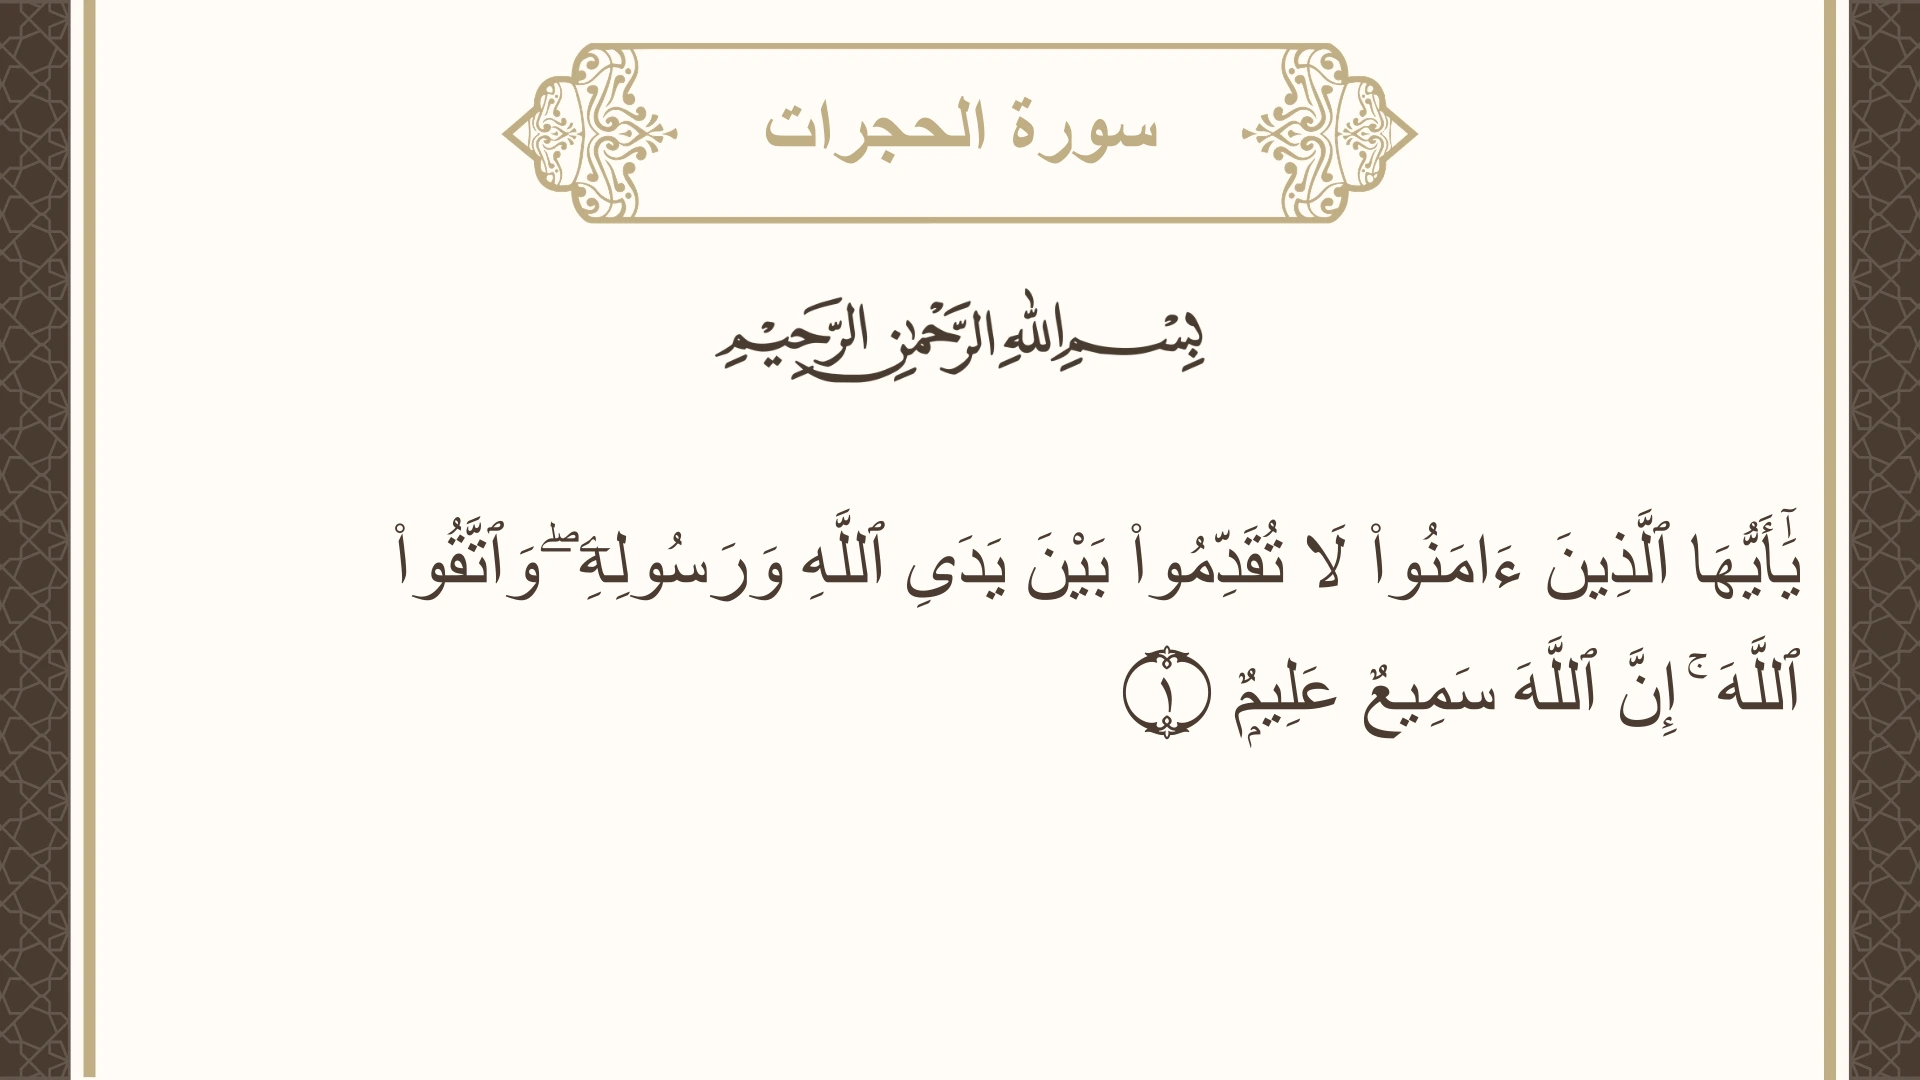 سورة الحجرات
بِسْمِ اللهِ الرَّحْمٰنِ الرَّحِيْمِ
يَٰٓأَيُّهَا ٱلَّذِينَ ءَامَنُوا۟ لَا تُقَدِّمُوا۟ بَيْنَ يَدَىِ ٱللَّهِ وَرَسُولِهِۦ ۖ وَٱتَّقُوا۟
ٱللَّهَ ۚ إِنَّ ٱللَّهَ سَمِيعٌ عَلِيمٌۭ ١